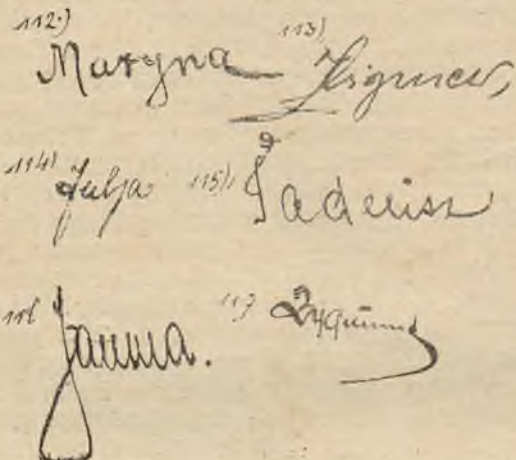 112.) Maryna 113)
114) Julja 115) Tadeusz
116 Janina.
117 Zygmunt